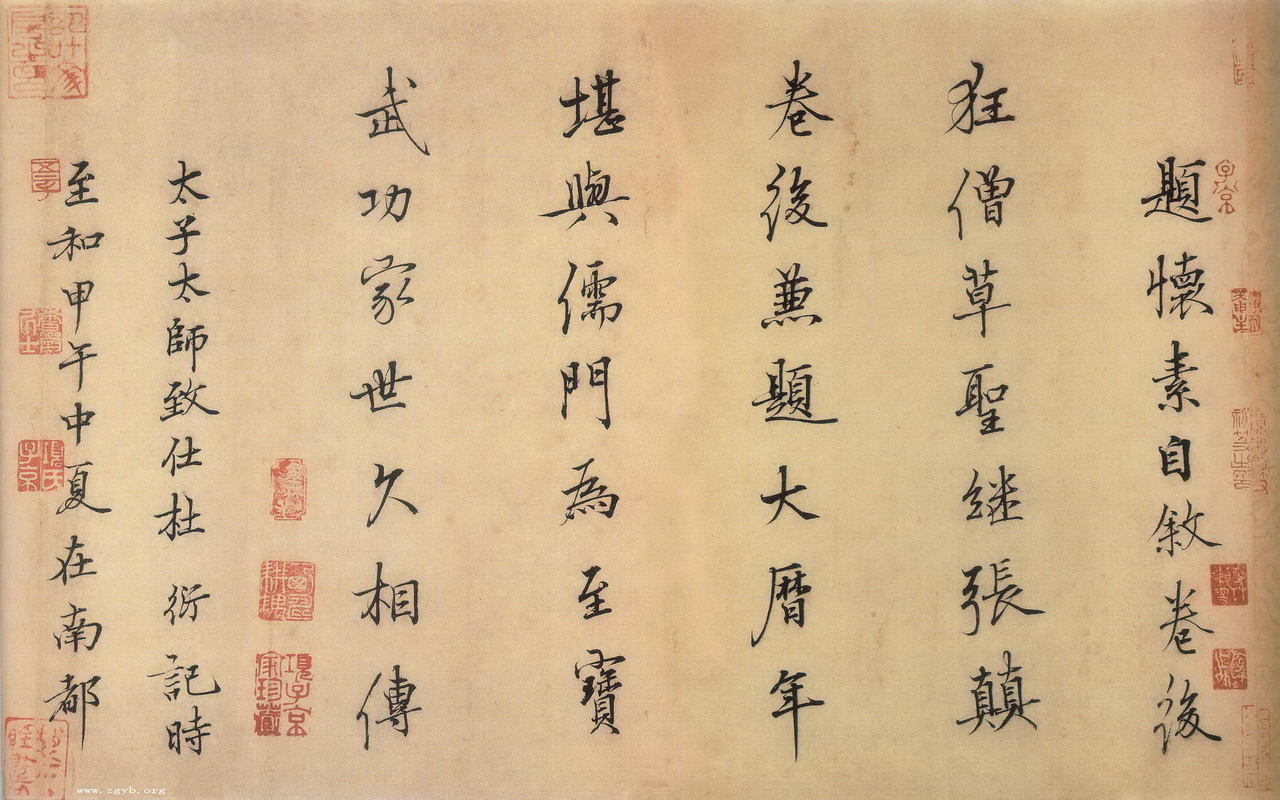 題懷素自敘卷後
狂僧草聖繼張顛
卷後兼題大曆年
堪與儒門為至寶
武功家世久相傳
太子太師致仕杜衍記時
至和甲午中夏在南都
項子京家珍藏
項氏子京
子京
www.zgyb.org